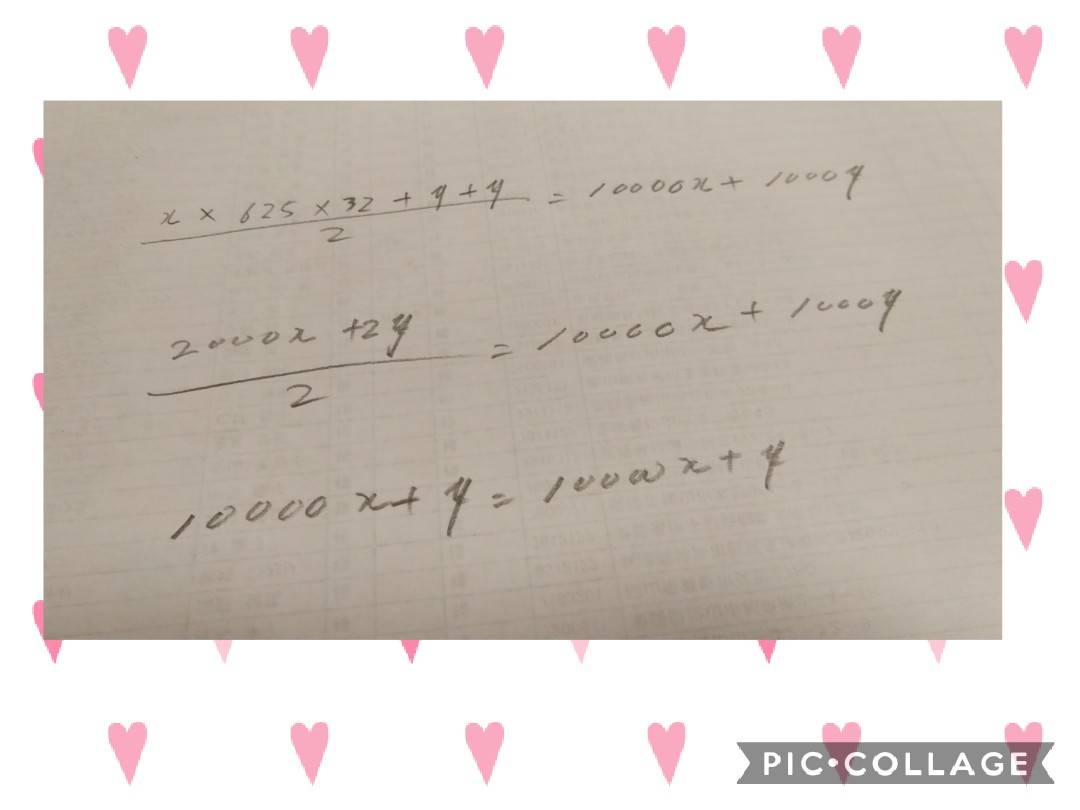 x × 625 × 32 + y + y
2
= 10000x + 1000y
2000x + 2y
2
= 10000x + 1000y
10000x + y = 10000x + y
PIC•COLLAGE